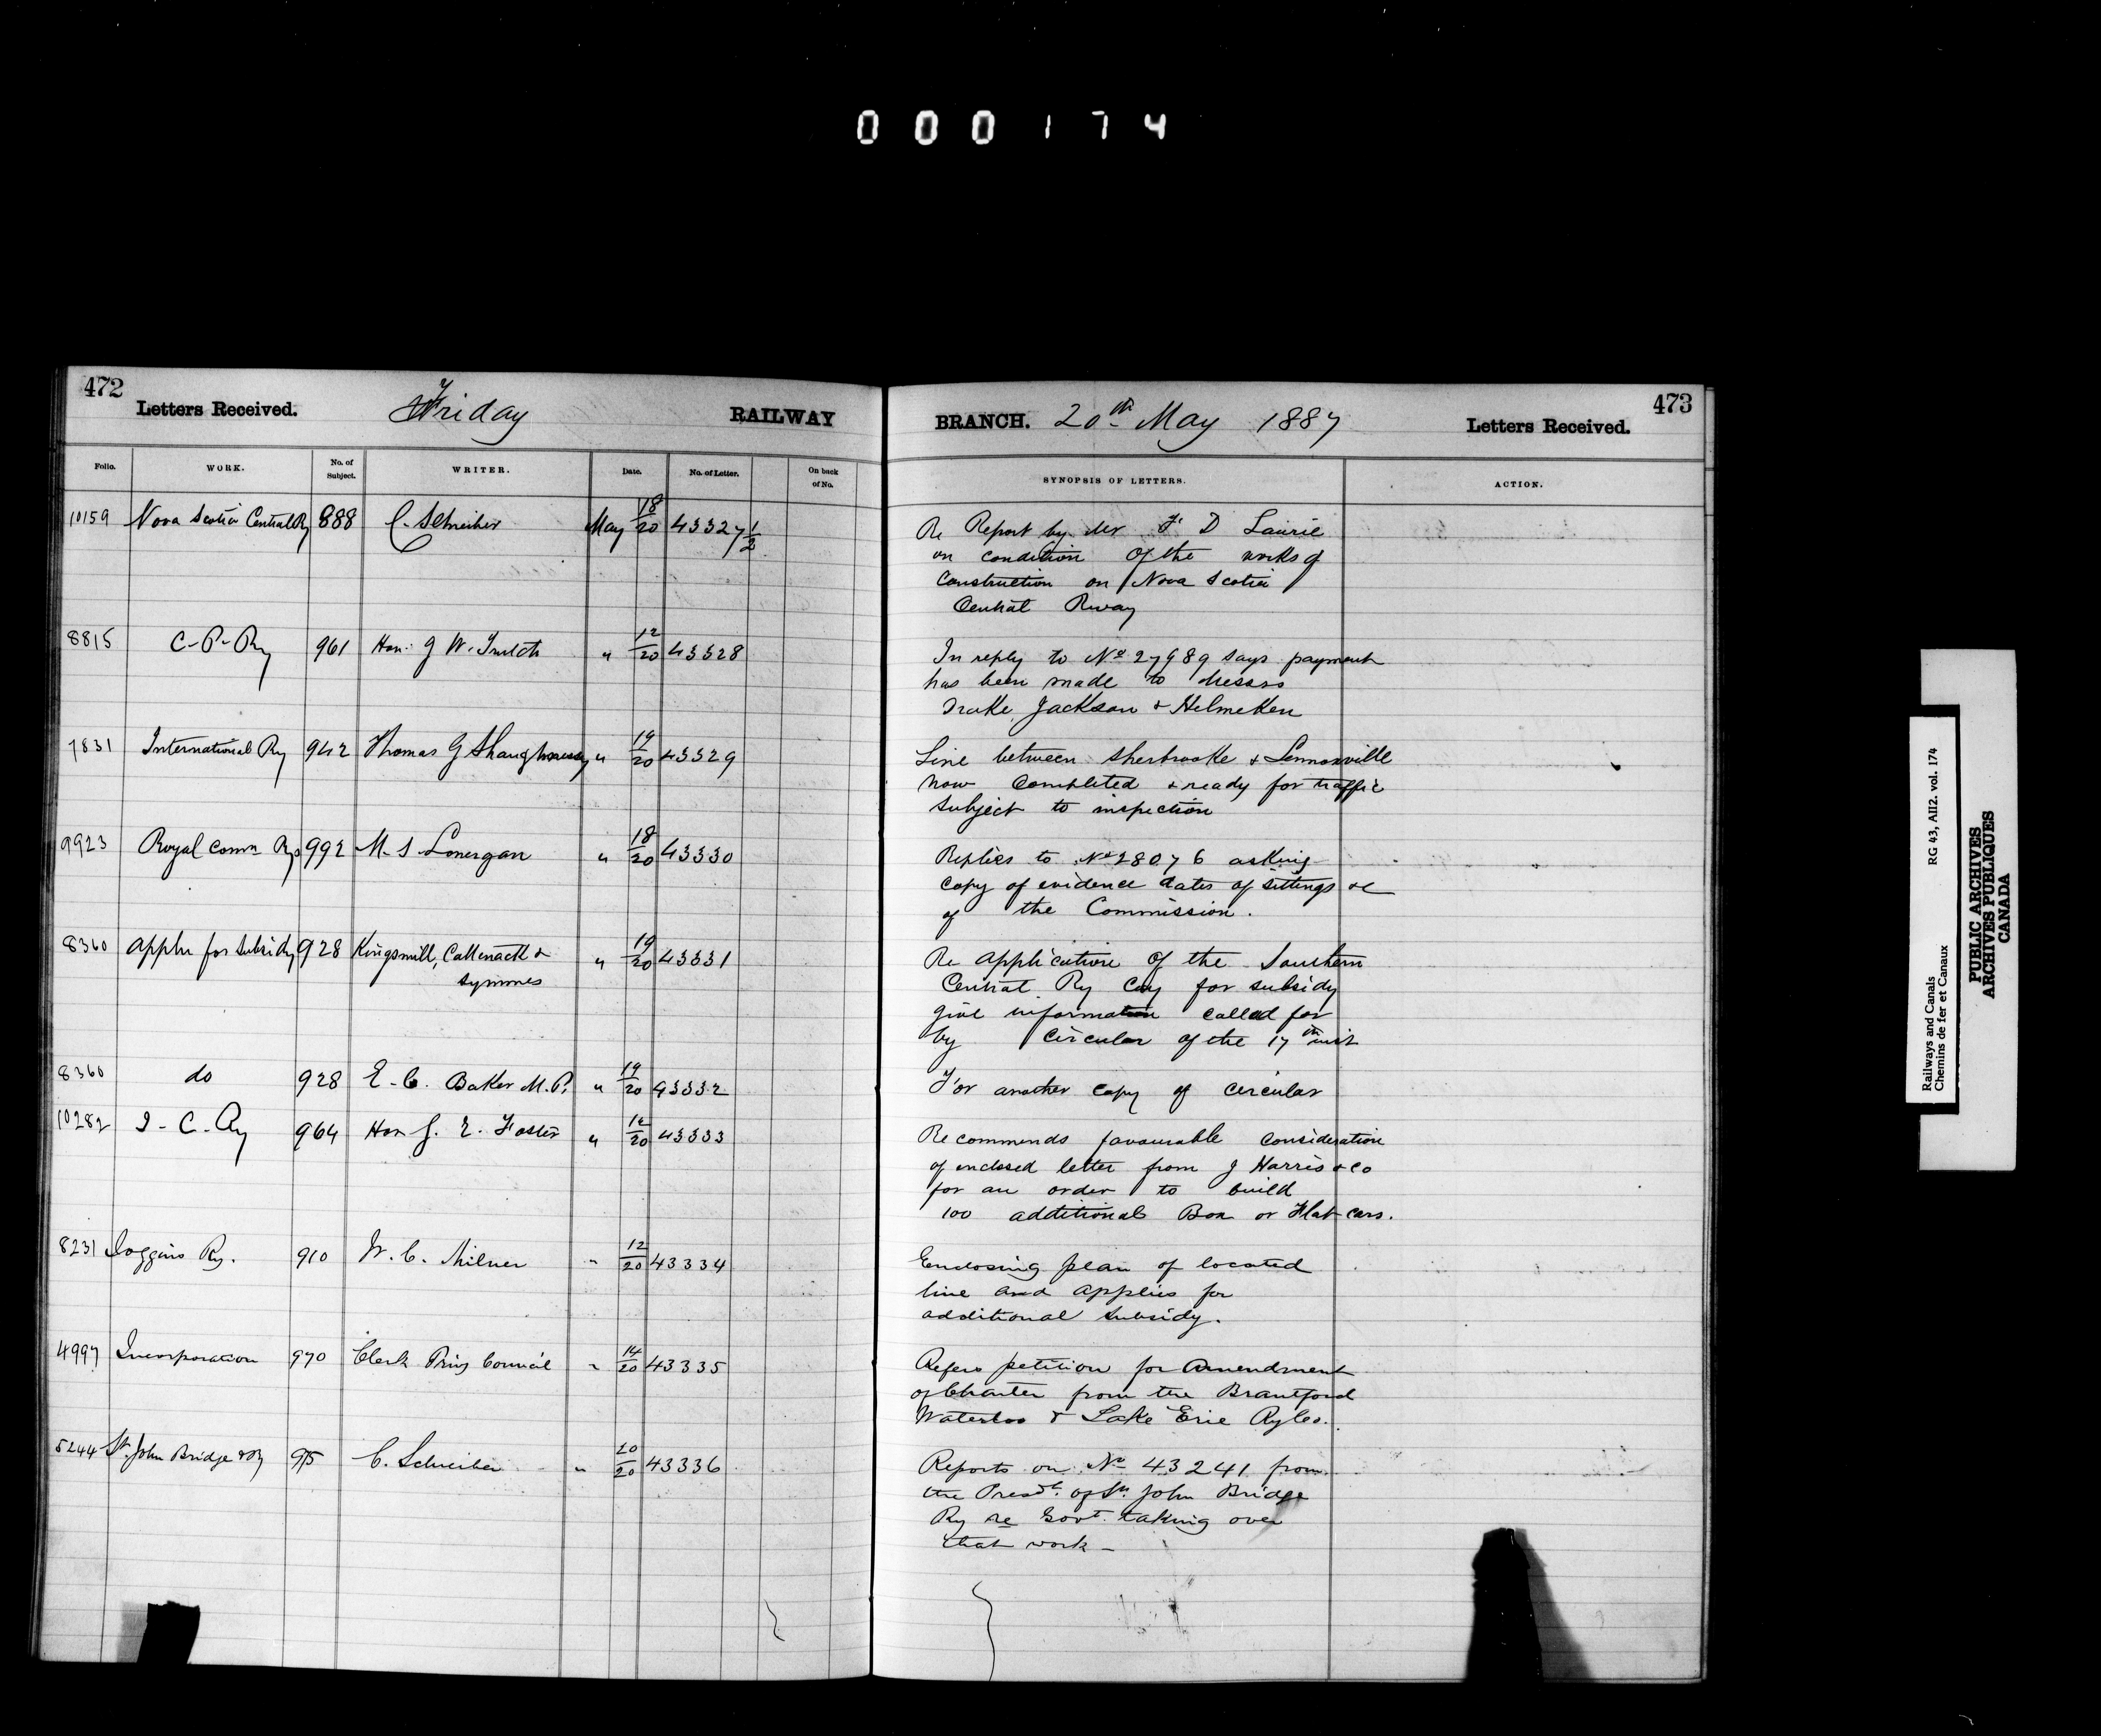 000174
472
Letters Received.
Friday
RAILWAY
Folio. WORK. No. of Subject. WRITER. Date. No. of Letter. On back of No.
10159 Nova Scotia Central Ry 888 C. Schreiber May 18/20 43327 1/2
8815 C-P-Ry 961 Hon. J W. Trutch " 12/20 43328
7831 International Ry 942 Thomas G Shaughnessy " 19/20 43329
9923 Royal Comn Rys 992 M. S. Lonergan " 18/20 43330
8360 Appln for Subsidy 928 Kingsmill, Cattenach &
Symmes " 19/20 43331
8360 do 928 E. C. Baker M.P. " 19/20 43332
10282 I-C-Ry 964 Hon G. E. Foster " 12/20 43333
8231 Joggins Ry. 910 W. C. Milner " 12/20 43334
4997 Incorporation 970 Clerk Privy Council " 14/20 43335
5244 St. John Bridge & Ry 975 C. Schreiber " 20/20 43336
BRANCH. 20th May 1887
Letters Received.
473
SYNOPSIS OF LETTERS. ACTION.
Re Report by Mr F D Laurie
on condition of the works of
Construction on Nova Scotia
Central Rway
In reply to No 27989 says payment
has been made to Messrs
Drake, Jackson & Helmcken
Line between Sherbrooke & Lennoxville
now completed & ready for traffic
subject to inspection
Replies to No 28076 asking
copy of evidence dates of sittings &c
of the Commission.
Re application of the Southern
Central Ry Coy for subsidy
give information called for
by circular of the 17th inst
For another copy of circular
Recommends favourable consideration
of enclosed letter from J Harris & Co
for an order to build
100 additional Box or Flat cars.
Enclosing plan of located
line and applies for
additional subsidy.
Refers petition for Amendment
of Charter from the Brantford
Waterloo & Lake Erie Ry Co.
Reports on No 43241 from
the Presdt. of St. John Bridge
Ry re Govt. taking over
that work -
Railways and Canals RG 43, AII2. vol. 174
Chemins de fer et Canaux
PUBLIC ARCHIVES
ARCHIVES PUBLIQUES
CANADA